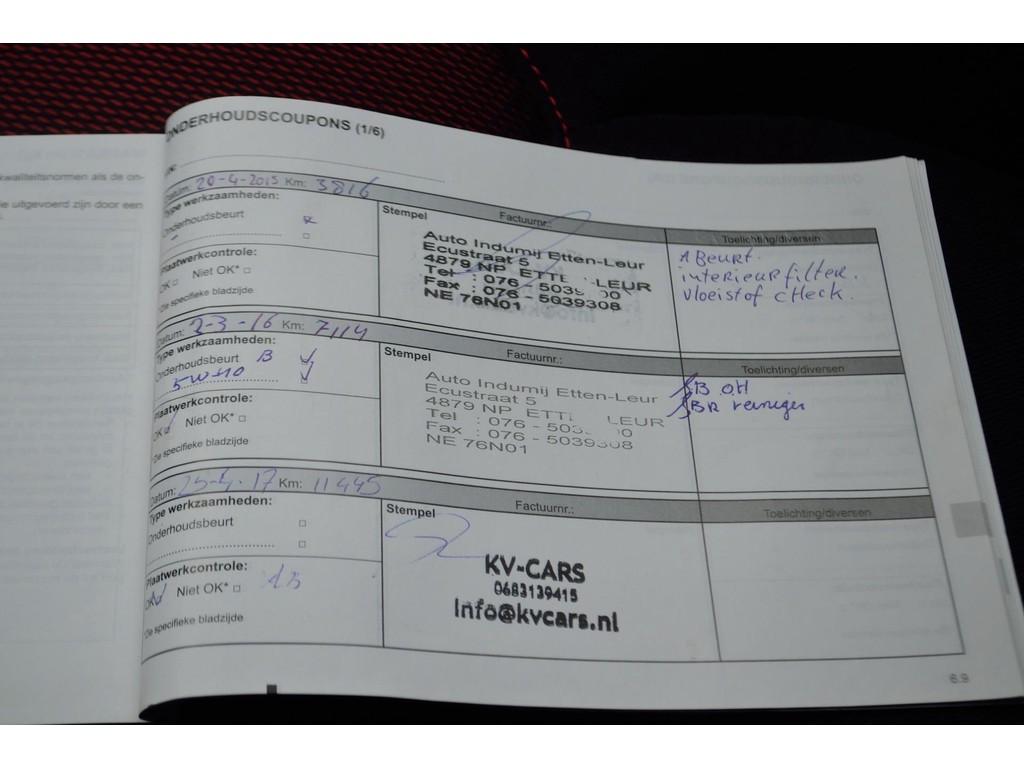 kwaliteitsnormen als de on-
uitgevoerd zijn door een
ONDERHOUDSCOUPONS (1/6)
Datum: 20-4-2015 Km: 3816
Type werkzaamheden:
Onderhoudsbeurt
Plaatwerkcontrole:
OK Niet OK* □
*De specifieke bladzijde
Stempel Factuurnr.:
Auto Indumij Etten-Leur
Ecustraat 5
4879 NP ETTE LEUR
Tel : 076 - 503
Fax : 076 - 5039308
NE 76N01
Toelichting/diversen
A Beurt.
interieurfilter.
vloeistof check.
Datum: 2-3-16 Km: 7114
Type werkzaamheden:
Onderhoudsbeurt B
5W40
Plaatwerkcontrole:
OK Niet OK* □
*De specifieke bladzijde
Stempel Factuurnr.:
Auto Indumij Etten-Leur
Ecustraat 5
4879 NP LEUR
Tel : 076 - 503
Fax : 076 - 5039308
NE 76N01
Toelichting/diversen
B OH
BR reiniger
Datum: 25-4-17 Km: 11445
Type werkzaamheden:
Onderhoudsbeurt □
□
Plaatwerkcontrole:
OK Niet OK* □
*De specifieke bladzijde
Stempel Factuurnr.:
KV-CARS
0683139415
Info@kvcars.nl
Toelichting/diversen
6.9